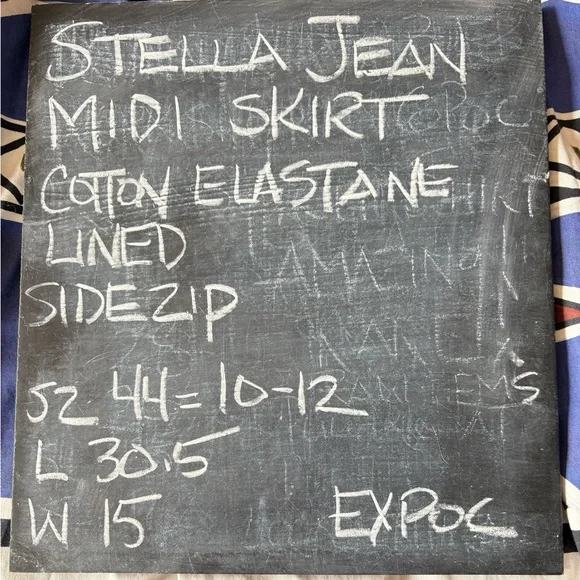 STELLA JEAN
MIDI SKIRT
COTTON ELASTANE
LINED
SIDE ZIP
SZ 44 = 10-12
L 30.5
W 15
EXPOC